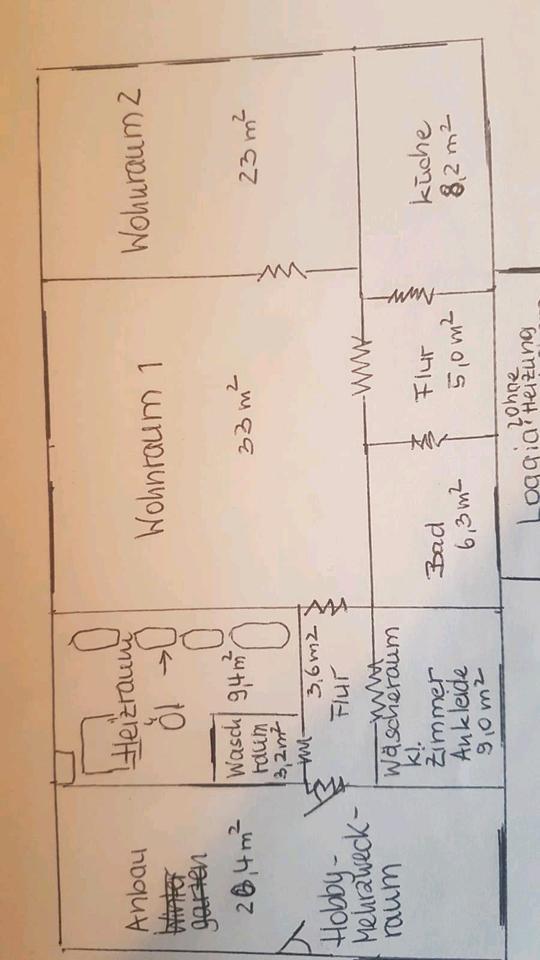 Wohnraum 2
23 m²
Küche
8,2 m²
Wohnraum 1
33 m²
Flur
5,0 m²
Bad
6,3 m²
Loggia
ohne
Heizung
Heizraum
Öl →
9,4 m²
Wasch
raum
3,2 m²
3,6 m²
Flur
Wäscheraum
kl.
Zimmer
Ankleide
9,0 m²
Anbau
Winter
garten
Hobby-
Mehrzweck-
raum